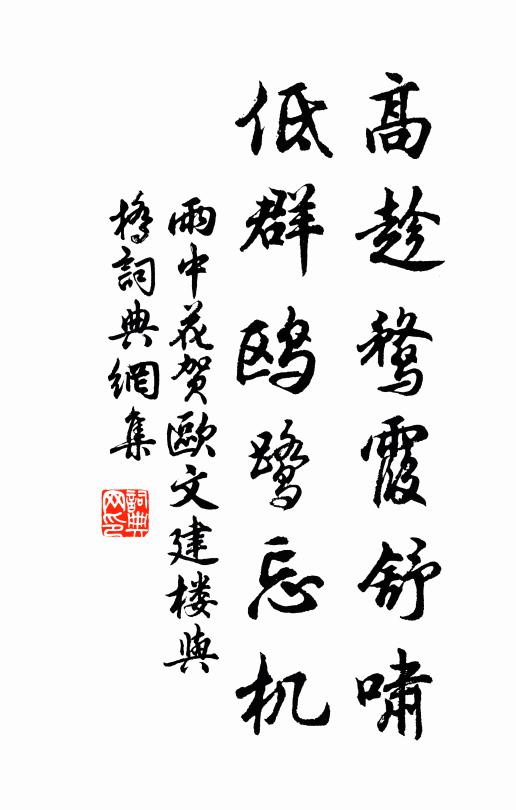 高趁鶩霞舒嘯
低群鸥鹭忘机
雨中花贺歐文建楼與
橋詞典網集
詞典网印